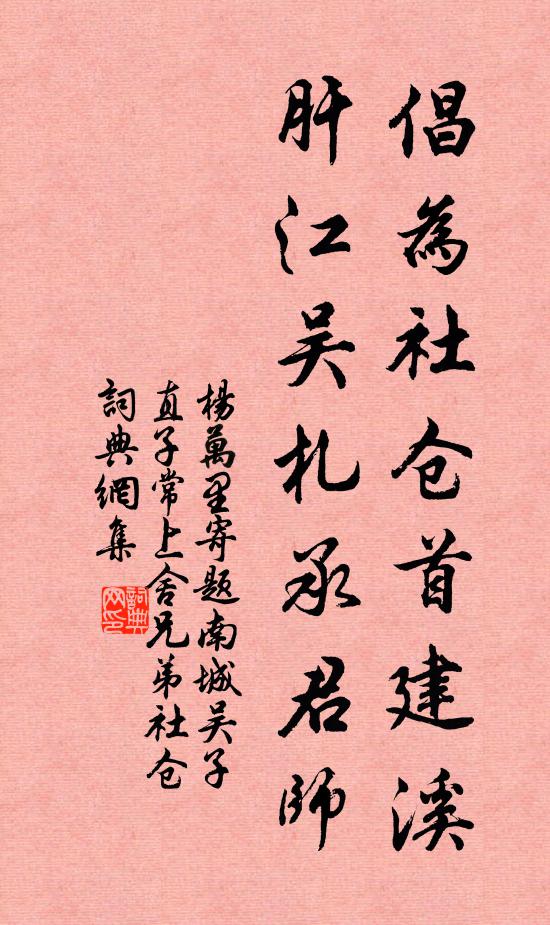 倡為社仓首建溪
肝江吴札承君師
楊萬里寄題南城吴子
直子常上舍兄弟社仓
詞典網集
詞典
网印